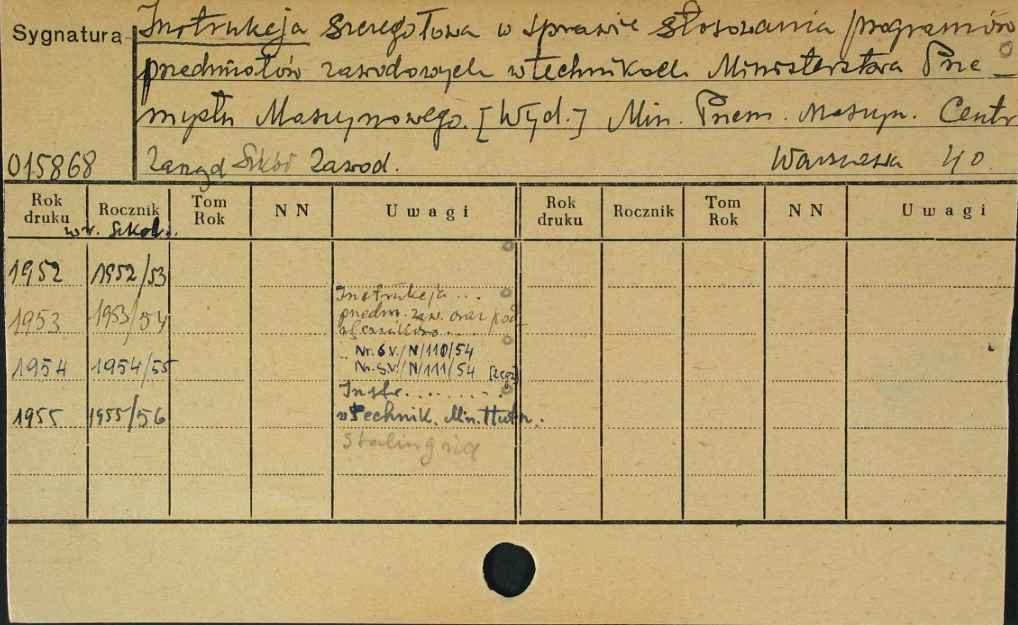 Sygnatura Instrukcja szczegółowa w sprawie stosowania programów
przedmiotów zawodowych w technikach Ministerstwa Prze-
mysłu Maszynowego. [Wyd.] Min. Przem. Maszyn. Centr
015868 Zarząd Szkół Zawod. Warszawa 40
Rok druku Rocznik Tom Rok NN Uwagi Rok druku Rocznik Tom Rok NN Uwagi
w r. szkol.
1952 1952/53
Instrukcja ...
1953 1953/54 przedm. zaw. oraz
Nr. 6 V./N/110/54
1954 1954/55 Nr. S.V./N/111/54
Instr. ........
1955 1955/56 w technik. Min. Hutn.